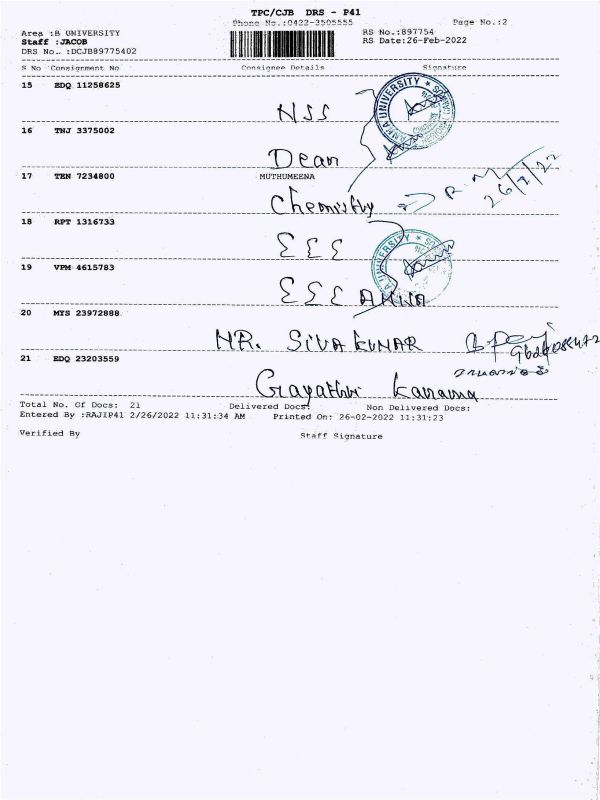 TPC/CJB DRS - P41
Phone No.:0422-3505555 Page No.:2
Area :B UNIVERSITY RS No.:897754
Staff :JACOB RS Date:26-Feb-2022
DRS No.. :DCJB89775402
S No Consignment No Consignee Details Signature
15 EDQ 11258625
NSS
16 TNJ 3375002
Dean
17 TEN 7234800 MUTHUMEENA
Chemistry 26/2/22
18 RPT 1316733
EEE
19 VPM 4615783
EEE AMNA
20 MYS 23972888
MR. SIVA KUMAR
21 EDQ 23203559
Gayathri
Total No. Of Docs: 21 Delivered Docs: Non Delivered Docs:
Entered By :RAJIP41 2/26/2022 11:31:34 AM Printed On: 26-02-2022 11:31:23
Verified By Staff Signature